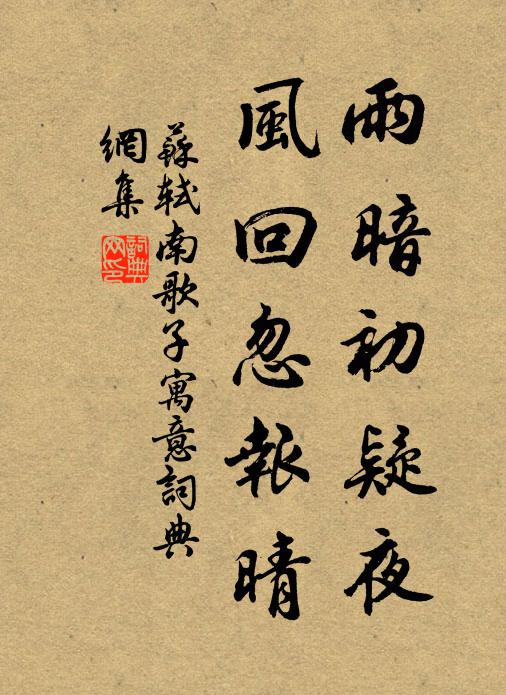 雨暗初疑夜
風回忽報晴
蘇軾南歌子寓意詞典
網集
詞典
网印